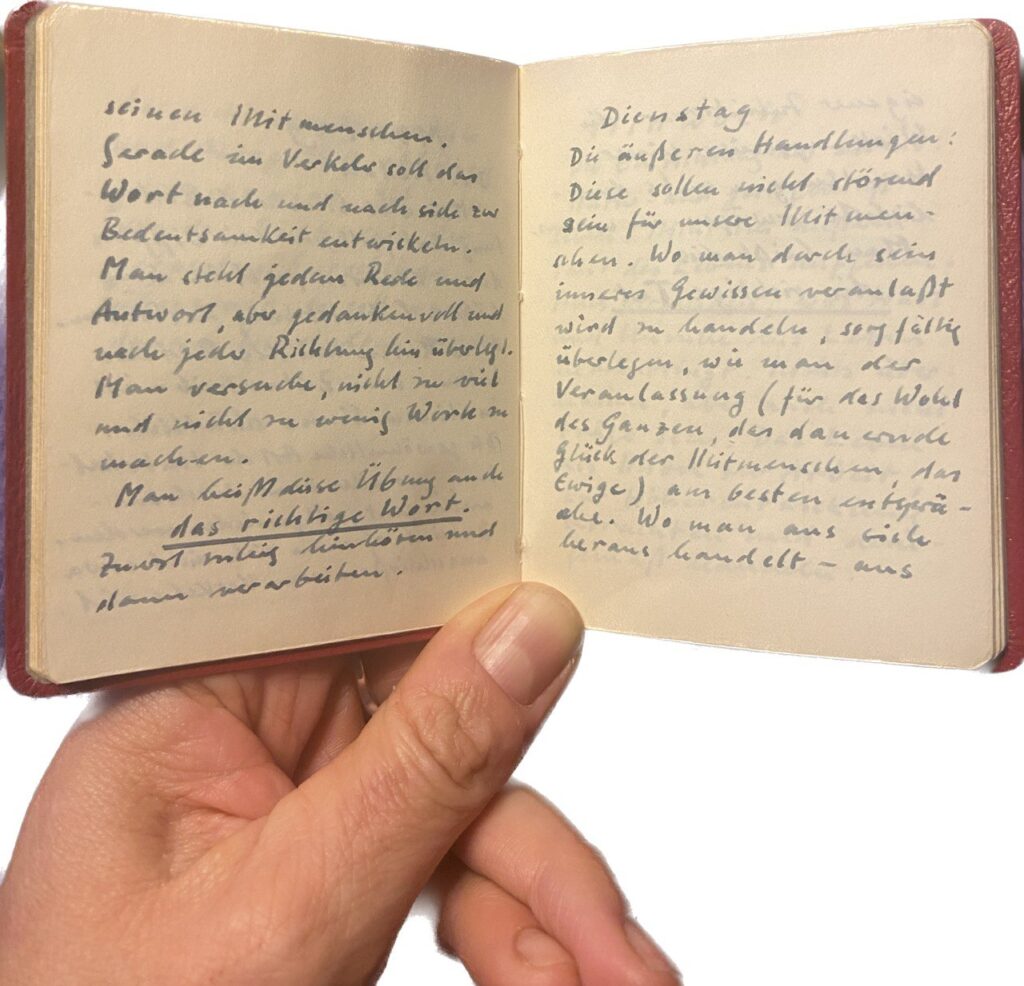 seinen Mitmenschen.
Gerade im Verkehr soll das
Wort nach und nach sich zur
Bedeutsamkeit entwickeln.
Man steht jedem Rede und
Antwort, aber gedankenvoll und
nach jeder Richtung hin überlegt.
Man versuche, nicht zu viel
und nicht zu wenig Worte zu
machen.
Man heißt diese Übung auch
das richtige Wort.
Zuerst ruhig hinhören und
dann verarbeiten.
Dienstag
Die äußeren Handlungen:
Diese sollen nicht störend
sein für unsere Mitmen-
schen. Wo man durch sein
inneres Gewissen veranlaßt
wird zu handeln, sorgfältig
überlegen, wie man der
Veranlassung (für das Wohl
des Ganzen, das dauernde
Glück der Mitmenschen, das
Ewige) am besten entsprä-
che. Wo man aus sich
heraus handelt – aus